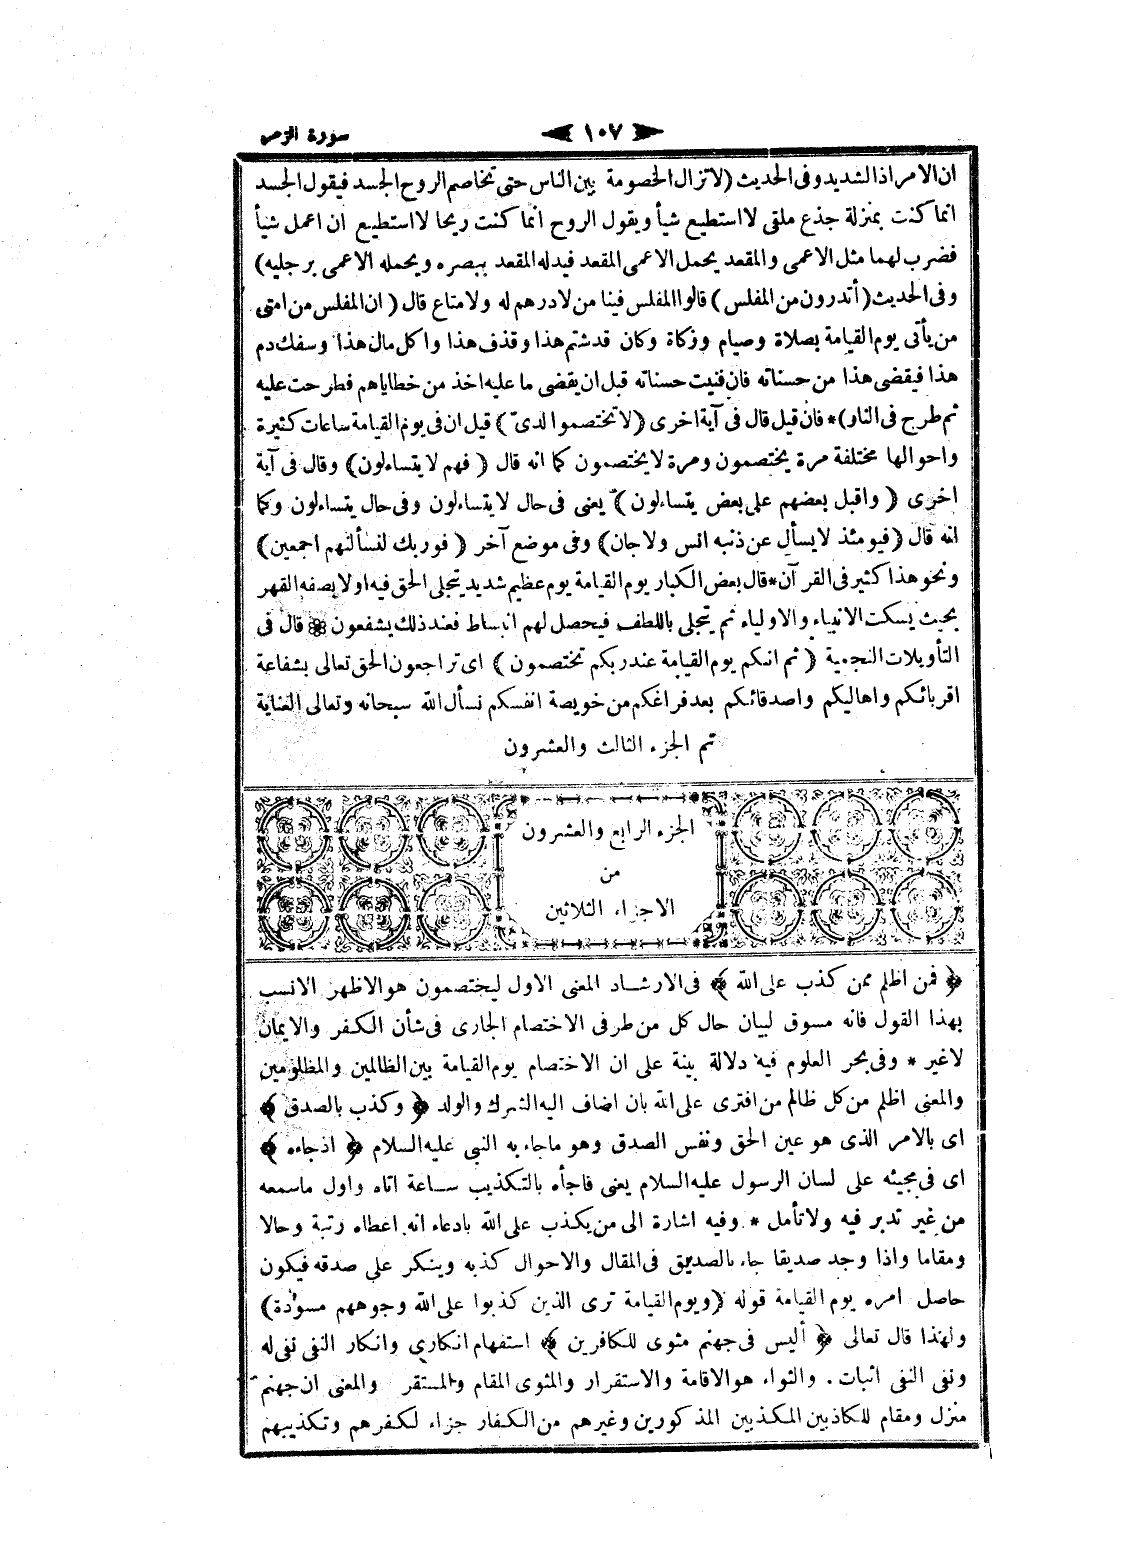 ﴿ ١٠٧ ﴾ سورة الزمر
ان الامر اذا لشديد وفى الحديث (لا تزال الخصومة بين الناس حتى تخاصم الروح الجسد فيقول الجسد
انما كنت بمنزلة جذع ملقى لا استطيع شيأ ويقول الروح انما كنت ريحا لا استطيع ان اعمل شيأ
فضرب لهما مثل الاعمى والمقعد يحمل الاعمى المقعد فيدله المقعد ببصره ويحمله الاعمى برجليه)
وفى الحديث (أتدرون من المفلس) قالوا المفلس فينا من لا درهم له ولا متاع قال (ان المفلس من امتى
من يأتى يوم القيامة بصلاة وصيام وزكاة وكان قد شتم هذا وقذف هذا واكل مال هذا وسفك دم
هذا فيقضى هذا من حسناته فان فنيت حسناته قبل ان يقضى ما عليه اخذ من خطاياهم فطرحت عليه
ثم طرح فى النار)* فان قيل قال فى آية اخرى (لا تختصموا لدىّ) قيل ان فى يوم القيامة ساعات كثيرة
واحوالها مختلفة مرة يختصمون ومرة لا يختصمون كما انه قال (فهم لا يتساءلون) وقال فى آية
اخرى (واقبل بعضهم على بعض يتساءلون) يعنى فى حال لا يتساءلون وفى حال يتساءلون وكما
انه قال (فيومئذ لا يسأل عن ذنبه انس ولا جان) وفى موضع آخر (فوربك لنسألنهم اجمعين)
ونحو هذا كثير فى القرآن* قال بعض الكبار يوم القيامة يوم عظيم شديد يتجلى الحق فيه اولا بصفه القهر
بحيث يسكت الانبياء والاولياء ثم يتجلى باللطف فيحصل لهم انبساط فعند ذلك يشفعون ❁ قال فى
التأويلات النجمية (ثم انكم يوم القيامة عند ربكم تختصمون) اى تراجعون الحق تعالى بشفاعة
اقربائكم واهاليكم واصدقائكم بعد فراغكم من خويصة انفسكم نسأل الله سبحانه وتعالى العناية
تم الجزء الثالث والعشرون
الجزء الرابع والعشرون
من
الاجزاء الثلاثين
﴿ فمن اظلم ممن كذب على الله ﴾ فى الارشاد المعنى الاول ليختصمون هو الاظهر الانسب
بهذا القول فانه مسوق لبيان حال كل من طرفى الاختصام الجارى فى شأن الكفر والايمان
لا غير * وفى بحر العلوم فيه دلالة بينة على ان الاختصام يوم القيامة بين الظالمين والمظلومين
والمعنى اظلم من كل ظالم من افترى على الله بان اضاف اليه الشرك والولد ﴿ وكذب بالصدق ﴾
اى بالامر الذى هو عين الحق ونفس الصدق وهو ما جاء به النبى عليه السلام ﴿ اذ جاءه ﴾
اى فى مجيئه على لسان الرسول عليه السلام يعنى فاجأه بالتكذيب ساعة اتاه واول ما سمعه
من غير تدبر فيه ولا تأمل * وفيه اشارة الى من يكذب على الله بادعاء انه اعطاه رتبة وحالا
ومقاما واذا وجد صديقا جاء بالصديق فى المقال والاحوال كذبه وينكر على صدقه فيكون
حاصل امره يوم القيامة قوله (ويوم القيامة ترى الذين كذبوا على الله وجوههم مسودة)
ولهذا قال تعالى ﴿ أليس فى جهنم مثوى للكافرين ﴾ استفهام انكارى وانكار النفى نفى له
ونفى النفى اثبات. والثواء هو الاقامة والاستقرار والمثوى المقام والمستقر والمعنى ان جهنم
منزل ومقام للكاذبين المكذبين المذكورين وغيرهم من الكفار جزاء لكفرهم وتكذيبهم